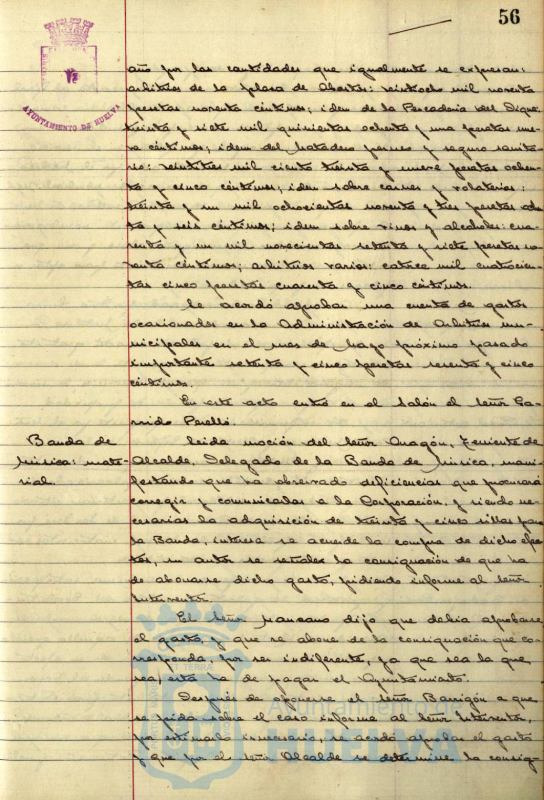 56
AYUNTAMIENTO DE HUELVA
año por las cantidades que igualmente se expresan:
arbitrios de la plaza de Abastos: veintiocho mil noventa
pesetas noventa céntimos; idem de la Pescadería del Dique
treinta y siete mil quinientas ochenta y una pesetas nue-
ve céntimos; idem del matadero perneo y seguro sanita-
rio: veintitres mil ciento treinta y nueve pesetas ochen-
ta y cinco céntimos; idem sobre carnes y volaterias:
treinta y un mil ochocientas noventa y tres pesetas
y seis céntimos; idem sobre vinos y alcoholes: cua-
renta y un mil novecientas setenta y siete pesetas no-
venta céntimos; arbitrios varios: catorce mil cuatrocien-
tas cinco pesetas cuarenta y cinco céntimos.
Se acordó aprobar una cuenta de gastos
ocasionados en la Administración de Arbitrios mu-
nicipales en el mes de Mayo próximo pasado
importante setenta y cinco pesetas sesenta y cinco
céntimos.
En este acto entró en el salón el señor Ga-
rrido Perelló.
Banda de
Música: mate-
rial.
Leida moción del señor Aragón, Teniente de
Alcalde, Delegado de la Banda de Música, mani-
festando que ha observado deficiencias que procurará
corregir y comunicarlas a la Corporación, y siendo ne-
cesarias la adquisición de treinta y cinco sillas para
la Banda, interesa se acuerde la compra de dicho efec-
tos, su autor se señale la consignación de que ha
de abonarse dicho gasto, pidiendo informe al señor
Interventor.
El señor Manzano dijo que debia aprobarse
el gasto, y que se abone de la consignación que co-
rresponda, por ser indiferente, ya que sea la que
sea, está ha de pagar el Ayuntamiento.
Después de oponerse el señor Barrigón a que
se pida sobre el caso informe al señor Interventor,
por estimarlo innecesario, se acordó aprobar el gasto
y que por el señor Alcalde se determine la consig-
Ayuntamiento de
HUELVA